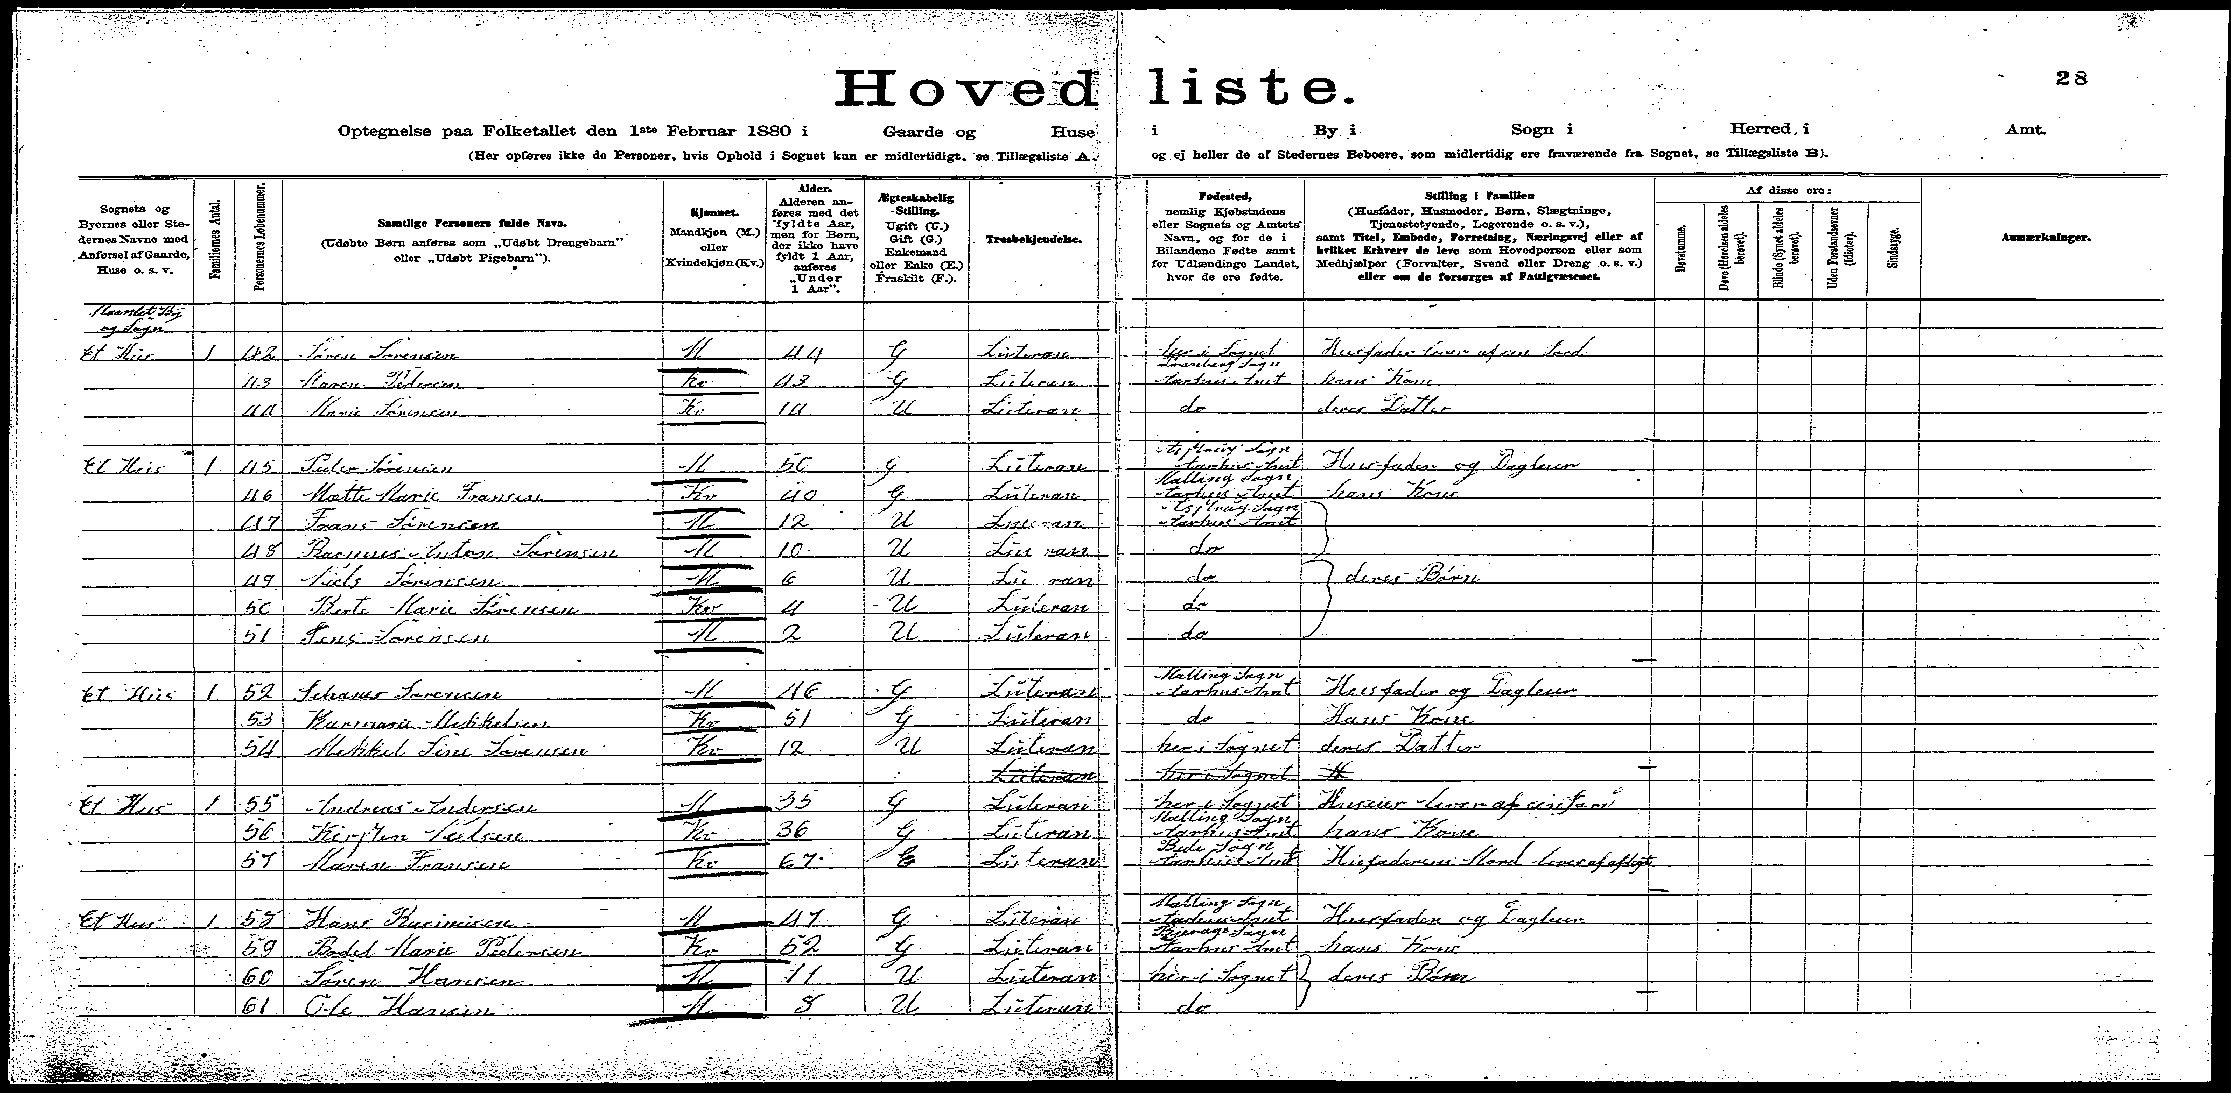 Hovedliste.
28
Optegnelse paa Folketallet den 1ste Februar 1880 i Gaarde og Huse i By i Sogn i Herred, i Amt.
(Her opføres ikke de Personer, hvis Ophold i Sognet kun er midlertidigt, se Tillægsliste A. og ej heller de af Stedernes Beboere, som midlertidig ere fraværende fra Sognet, se Tillægsliste B).
Sognets og Byernes eller Stedernes Navne med Anførsel af Gaarde, Huse o. s. v.
Familiernes Antal.
Personernes Løbenummer.
Samtlige Personers fulde Navn. (Udøbte Børn anføres som „Udøbt Drengebarn" eller „Udøbt Pigebarn").
Kjønnet. Mandkjøn (M.) eller Kvindekjøn (Kv.)
Alder. Alderen anføres med det fyldte Aar, men for Børn, der ikke have fyldt 1 Aar, anføres „Under 1 Aar".
Ægteskabelig Stilling. Ugift (U.) Gift (G.) Enkemand eller Enke (E.) Fraskilt (F.).
Troesbekjendelse.
Fødested, nemlig Kjøbstadens eller Sognets og Amtets Navn, og for de i Bilandene Fødte samt for Udlændinge Landet, hvor de ere fødte.
Stilling i Familien (Husfader, Husmoder, Børn, Slægtninge, Tjenestetyende, Logerende o. s. v.), samt Titel, Embede, Forretning, Næringsvej eller af hvilket Erhverv de leve som Hovedperson eller som Medhjælper (Forvalter, Svend eller Dreng o. s. v.) eller om de forsørges af Fattigvæsenet.
Af disse ere:
Døvstumme.
Døve (Hørelsen aldeles berøvet).
Blinde (Synet aldeles berøvet).
Uden Forstandsevner (Idioter).
Sindssyge.
Anmærkninger.
Maarslet By
og Sogn
Et Hus 1 42 Søren Sørensen M 44 G Luteran her i Sognet Husfader lever af sin Jord
43 Maren Pedersen Kv 43 G Luteran Sogn Aarhus Amt hans Kone
44 Marie Sørensen Kv 14 U Luteran do deres Datter
Et Hus 1 45 Peder Sørensen M 50 G Luteran Sogn Aarhus Amt Husfader og Dagleier
46 Mette Marie Fransen Kv 40 G Luteran Malling Sogn Aarhus Amt hans Kone
47 Frans Sørensen M 12 U Luteran Sogn Aarhus Amt
48 Rasmus Anton Sørensen M 10 U Luteran do
49 Niels Sørensen M 6 U Luteran do deres Børn
50 Berte Marie Sørensen Kv 4 U Luteran do
51 Jens Sørensen M 2 U Luteran do
Et Hus 1 52 Sørensen M 46 G Luteran Malling Sogn Aarhus Amt Husfader og Dagleier
53 Karmarie Mikkelsen Kv 51 G Luteran do Hans Kone
54 Mikkel Sine Sørensen Kv 12 U Luteran her i Sognet deres Datter
Luteran her i Sognet H
Et Hus 1 55 Andreas Andersen M 35 G Luteran her i Sognet Huseier lever af sin Jord
56 Kirsten Nielsen Kv 36 G Luteran Malling Sogn Aarhus Amt hans Kone
57 Maren Fransen Kv 67 E Luteran Sogn Aarhus Amt Husfaderens Moder lever af aftægt
Et Hus 1 58 Hans Rasmusen M 47 G Luteran Malling Sogn Aarhus Amt Husfader og Dagleier
59 Bodel Marie Pedersen Kv 52 G Luteran Sogn Aarhus Amt hans Kone
60 Søren Hansen M 11 U Luteran her i Sognet deres Børn
61 Ole Hansen M 8 U Luteran do